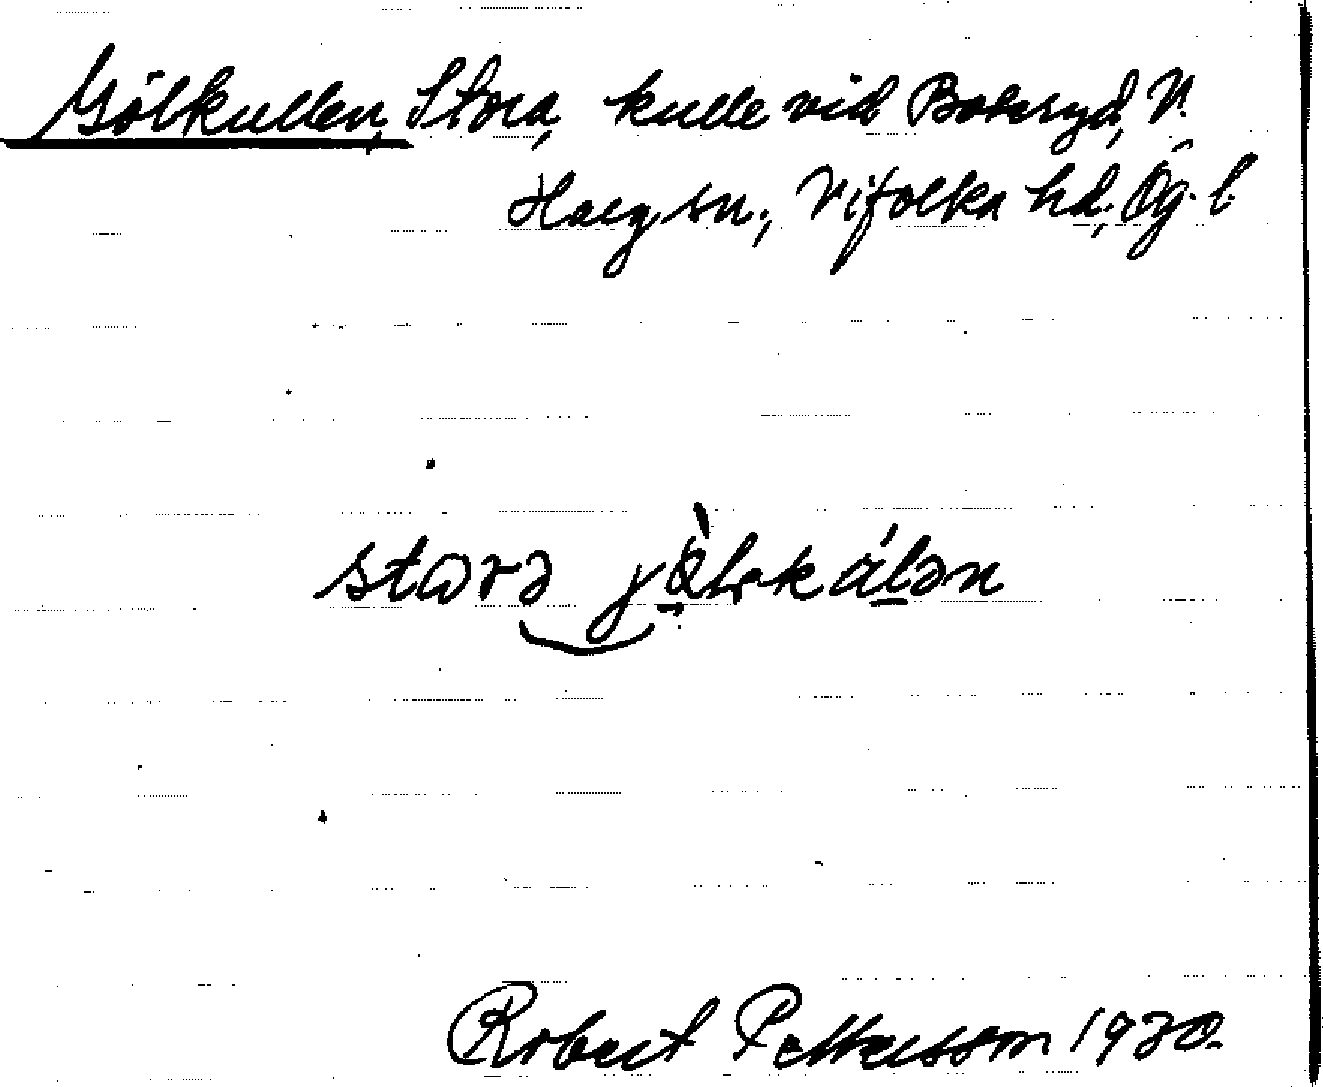 Gölkullen, Stora, kulle vid Boksryd, V.
Harg sn., Vifolka hd, Ög. l.
stora jölkulən
Robert Pettersson 1930.